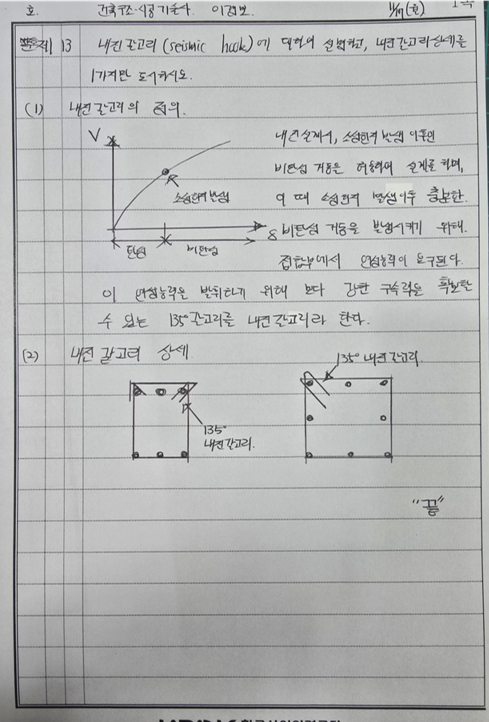 호. 건축구조·시공기술사 11/19(화)
문제 13 내진갈고리(seismic hook)에 대하여 설명하고, 내진갈고리상세를
1가지만 도시하시오.
(1) 내진갈고리의 정의.
V
소성힌지발생
δ
탄성
비탄성
내진설계시, 소성힌지 발생 이후인
비탄성 거동을 허용하여 설계를 하며,
이 때 소성힌지 발생이후 충분한
비탄성 거동을 발생시키기 위해.
접합부에서 연성능력이 요구된다.
이 연성능력을 발휘하기 위해 보다 강한 구속력을 확보할
수 있는 135° 갈고리를 내진갈고리라 한다.
(2) 내진갈고리 상세.
135°
내진갈고리.
135° 내진갈고리.
"끝"